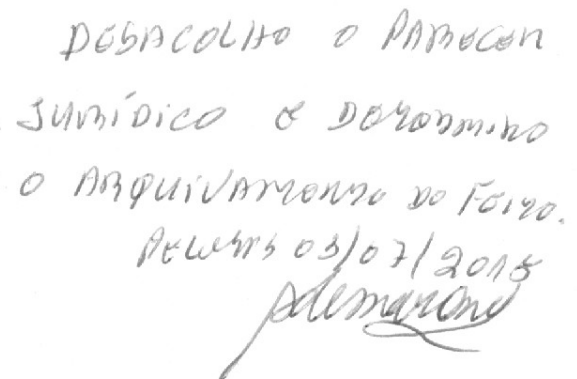 DESACOLHO O PARECER
JURÍDICO E DETERMINO
O ARQUIVAMENTO DO FEITO.
PELOTAS 03/07/2015